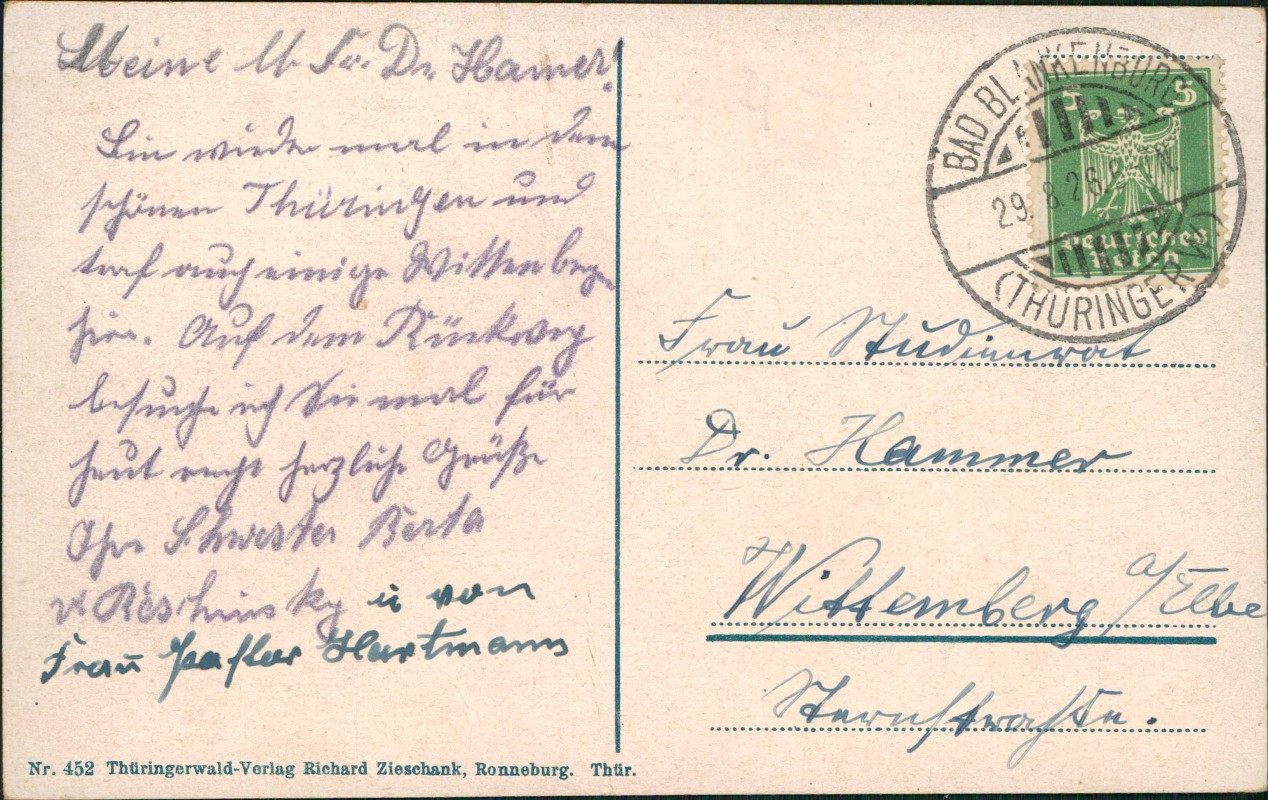 Meine l. Fr. Dr. Hamer!
Bin wieder mal in dem
schönen Thüringen und
traf auch einige Wittenberger
hier. Auf dem Rückweg
besuche ich Sie mal für
heut recht herzliche Grüße
Ihre Schwester Berta
v. Reschinsky u von
Frau Pastor Hartmann
Nr. 452 Thüringerwald-Verlag Richard Zieschank, Ronneburg. Thür.
BAD BLANKENBURG
29. 8. 26
(THÜRINGERW.)
5 5
Deutsches
Reich
Frau Studienrat
Dr. Hammer
Wittemberg a/Elbe
Sternstraße.